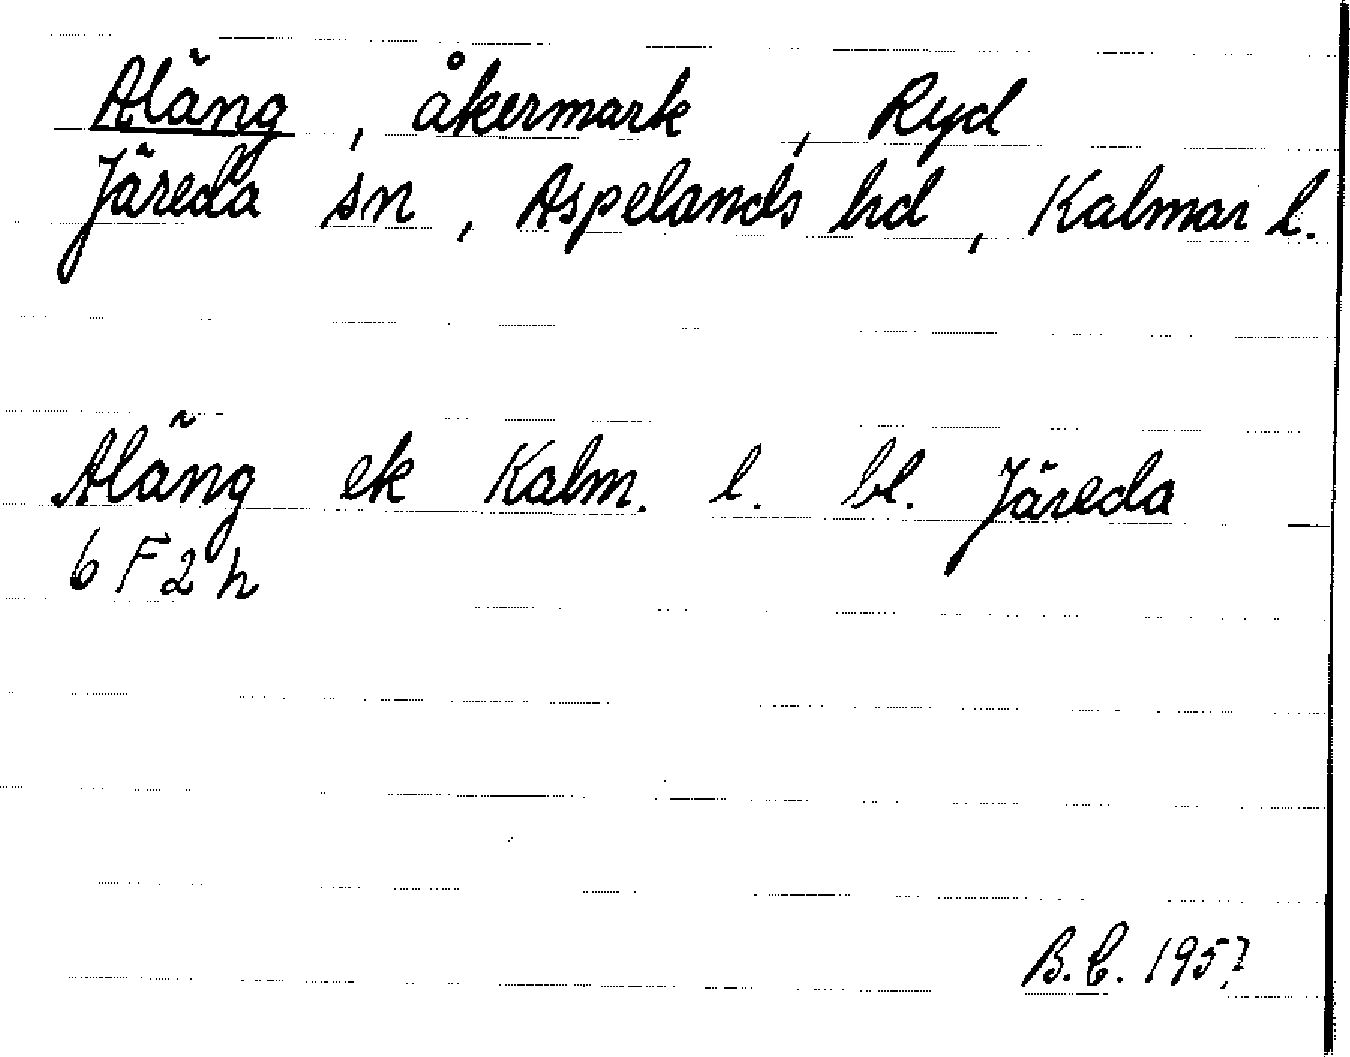 Aläng, åkermark, Ryd
Järeda sn, Aspelands hd, Kalmar l.
Aläng ek Kalm. l. bl. Järeda
6 F 2 h
B.C. 1957